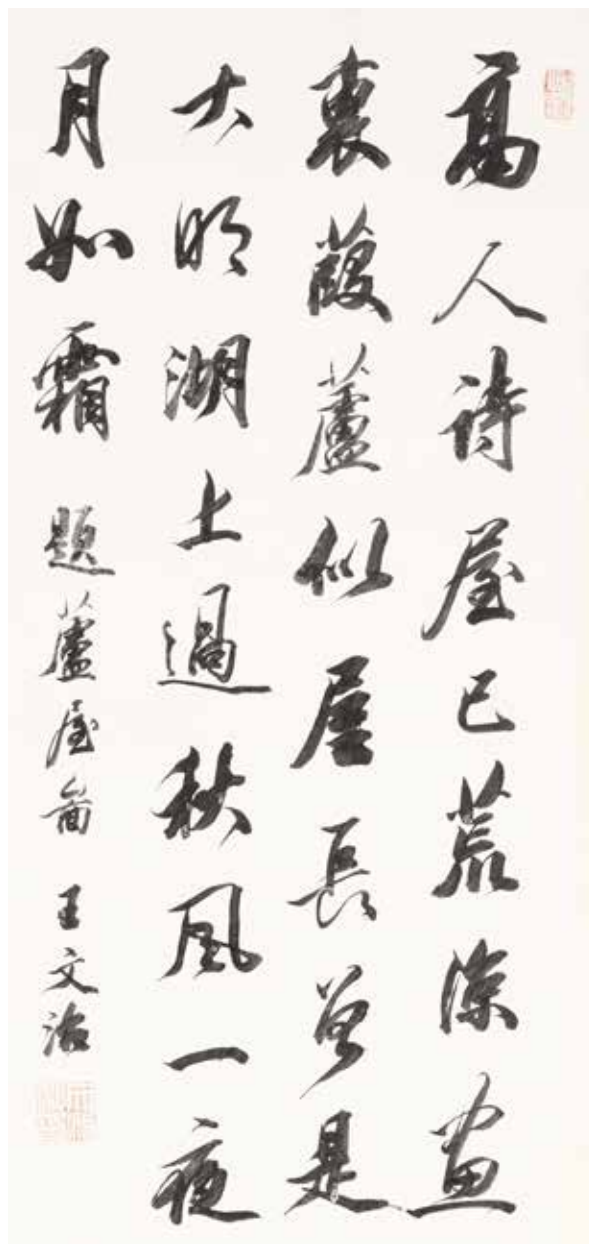 高人詩屋已荒涼畫
裏葭蘆似屋長曾是
大明湖上過秋風一夜
月如霜 題蘆屋圖 王文治